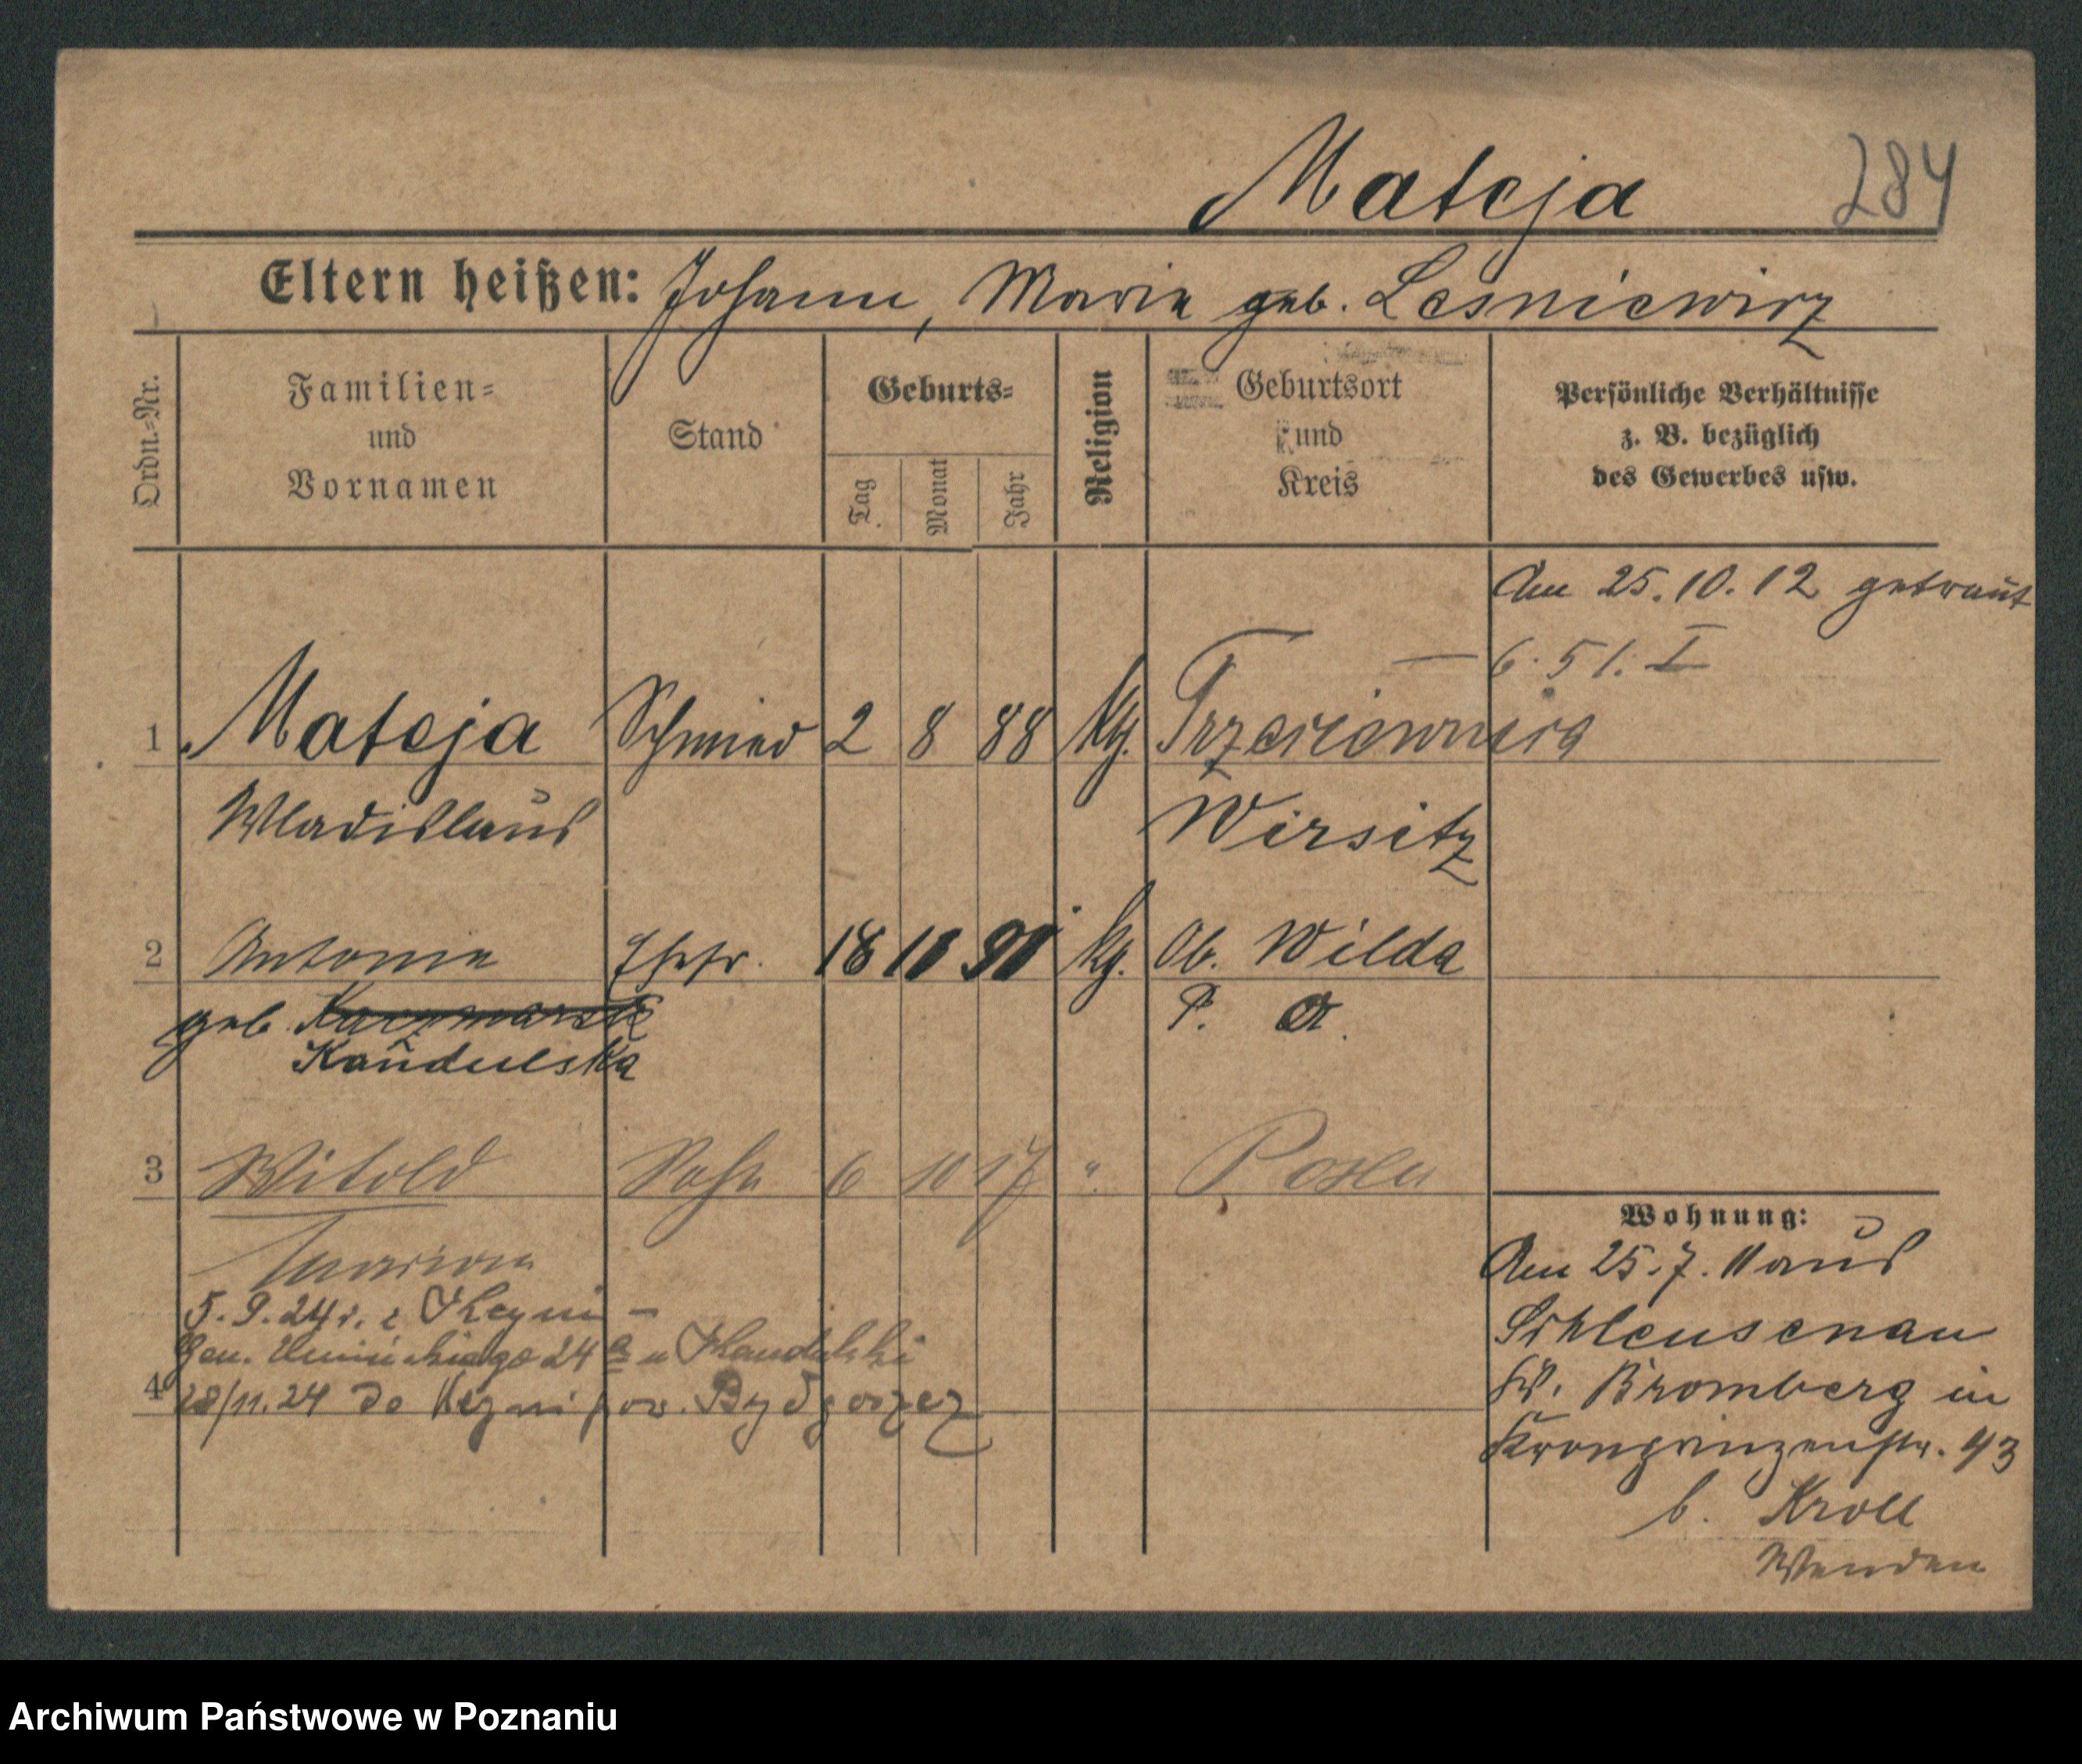 Mateja 284
Eltern heißen: Johann, Marie geb. Lesniewicz
Ordn.-Nr.
Familien=
und
Vornamen
Stand
Geburts=
Tag
Monat
Jahr
Religion
Geburtsort
und
Kreis
Persönliche Verhältnisse
z. B. bezüglich
des Gewerbes usw.
Am 25.10.12 getraut
6.51. I
1 Mateja Schmied 2 8 88 kg.
Wladislaus Wirsitz
2 Antonie Ehefr. 18 10 90 kg. Ob. Wilda
geb. Kaczmarek P. O.
Kandulska
3 Witold Sohn 6 10 17 " Posen
Marian
5.9.24 r. z Kcyni
24 a u Kandulski
4 28/11.24 do Kcyni pow. Bydgoszcz
Wohnung:
Am 25.7.11 aus
Schleusenau
Kr. Bromberg in
Kronprinzenstr. 43
b. Kroll
Wenden
Archiwum Państwowe w Poznaniu